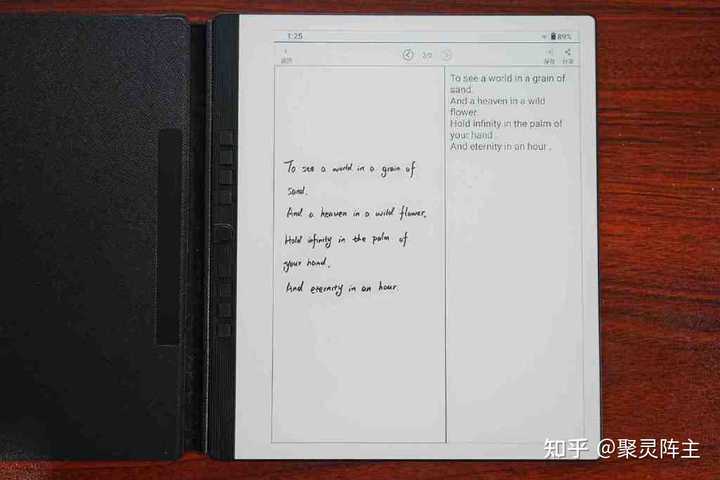 1:25
89%
2/2
保存
分享
To see a world in a grain of
sand.
And a heaven in a wild flower.
Hold infinity in the palm of
your hand.
And eternity in an hour.
To see a world in a grain of
sand.
And a heaven in a wild
flower.
Hold infinity in the palm of
your hand .
And eternity in an hour .
知乎 @聚灵阵主